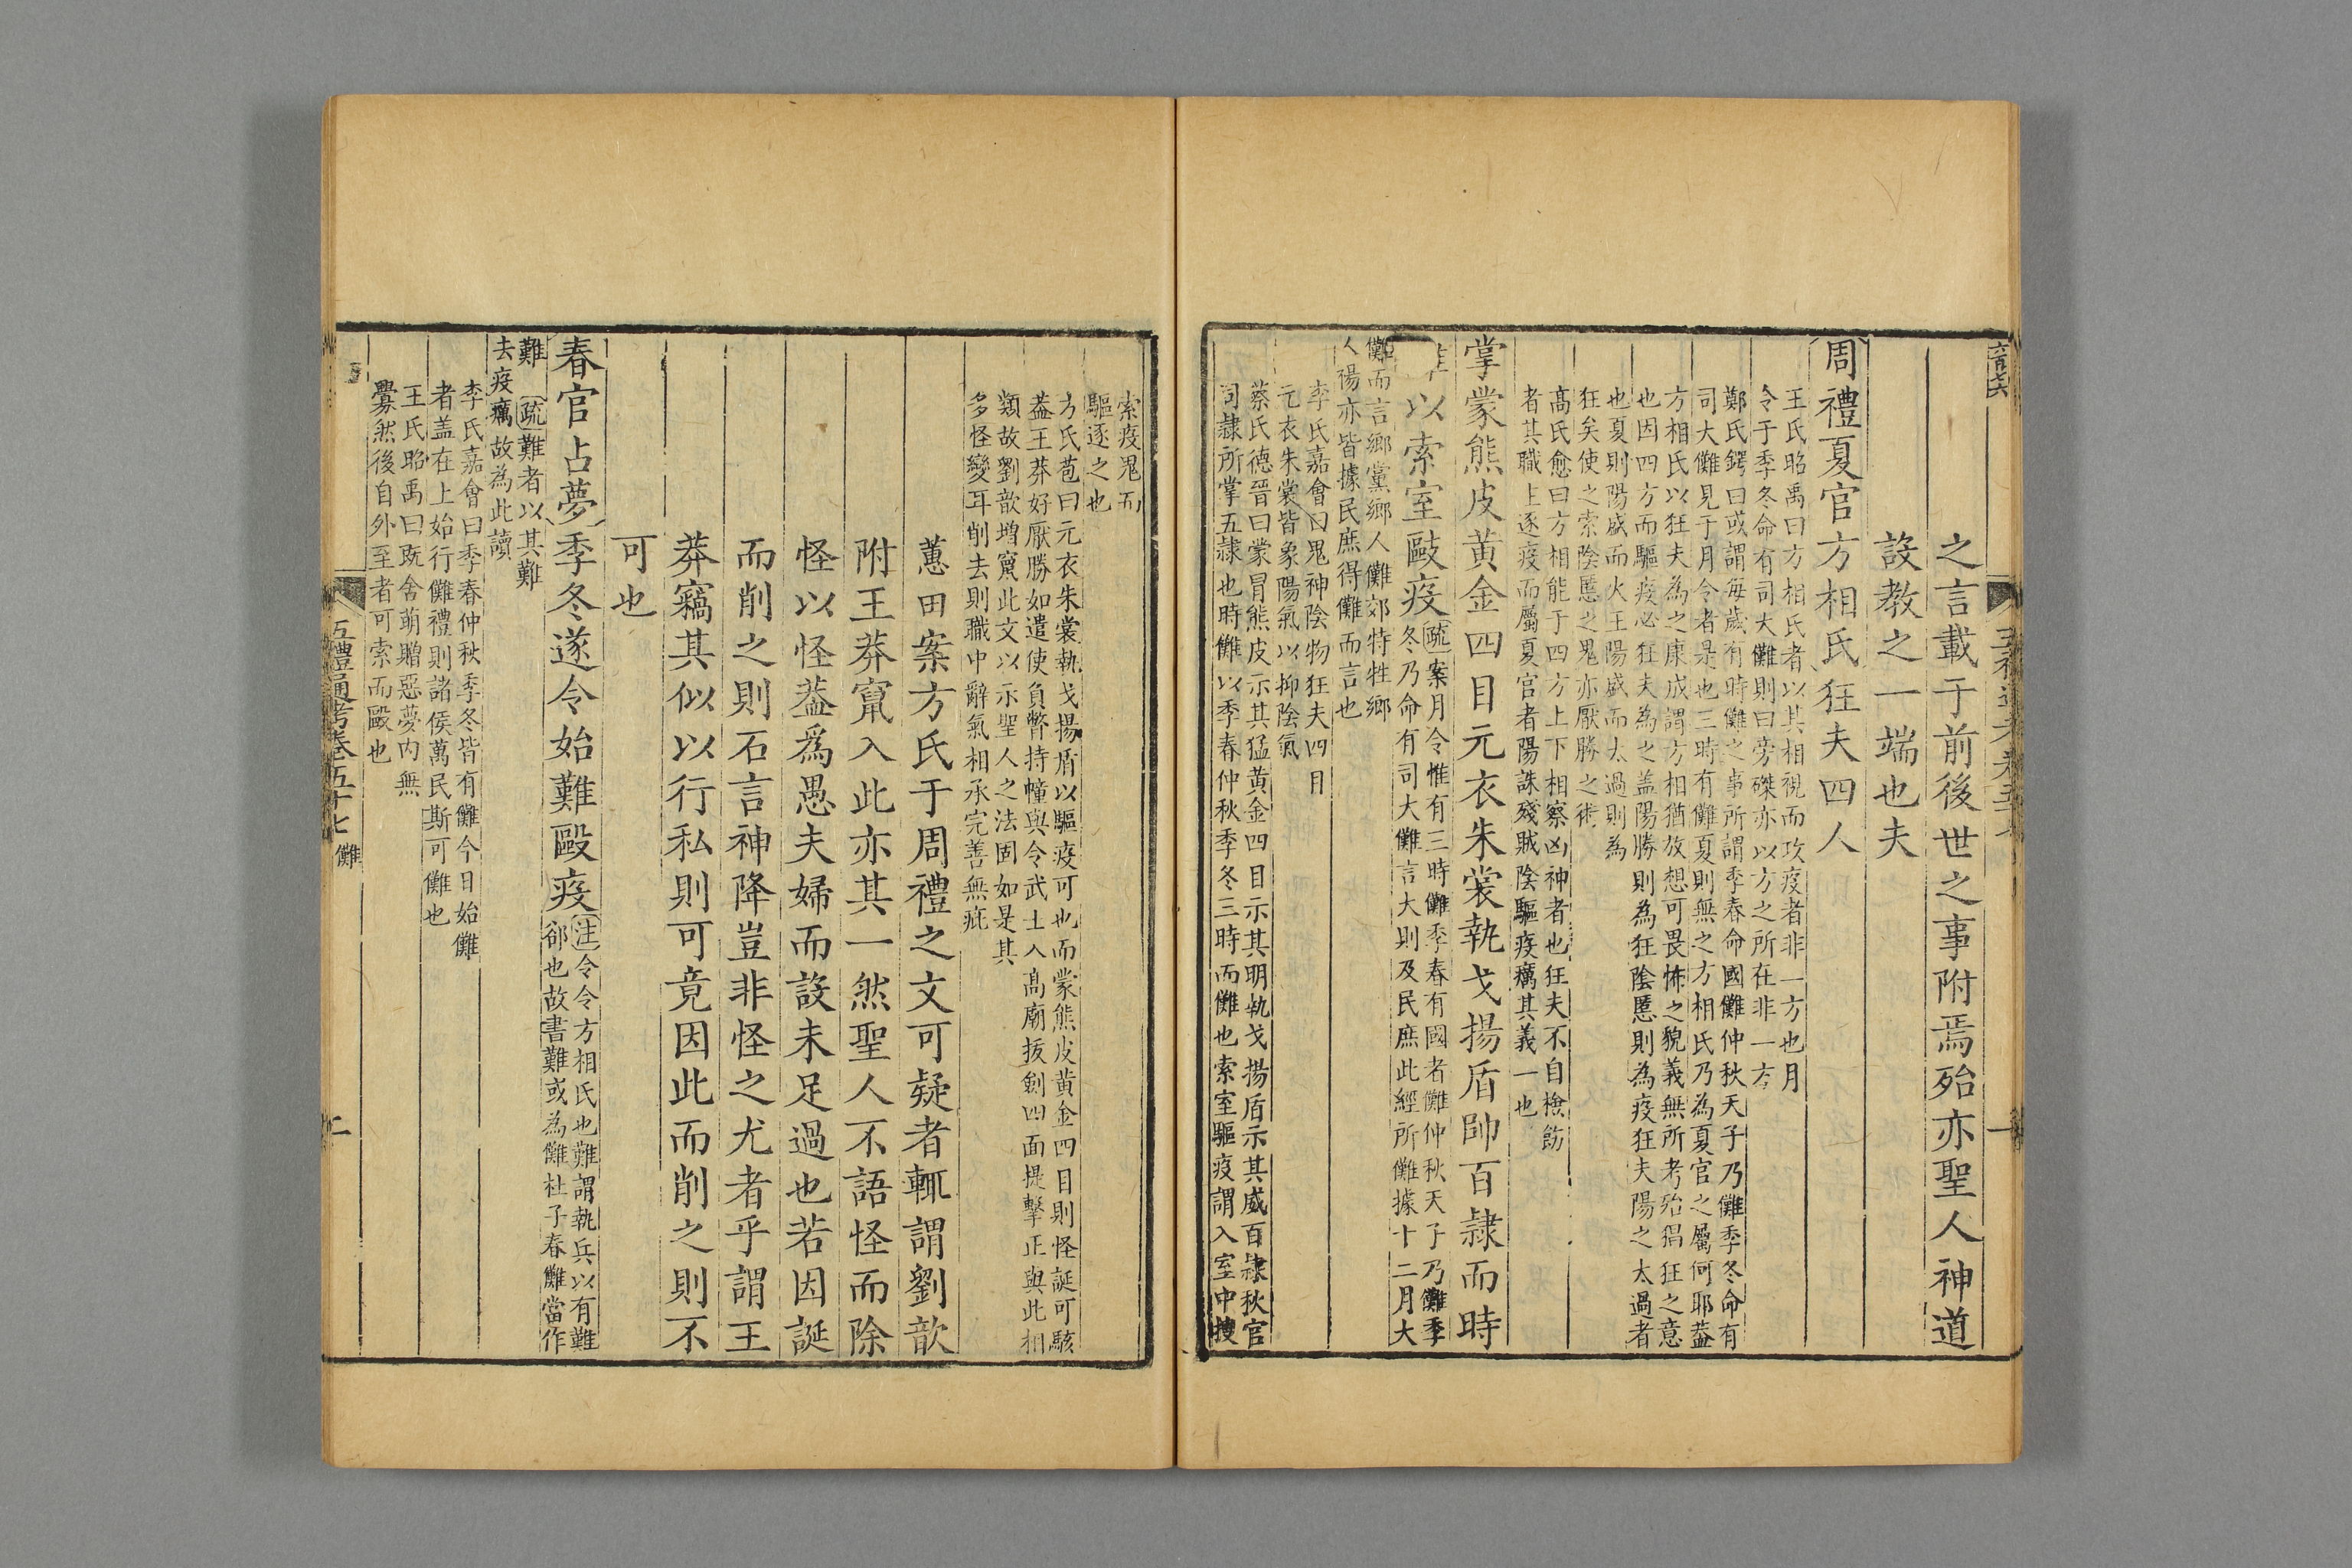 之言載于前後世之事附焉殆亦聖人神道
設教之一端也夫
周禮夏官方相氏狂夫四人
王氏昭禹曰方相氏者以其相視而攻疫者非一方也月
令于季冬命有司大儺則曰旁磔亦以方之所在非一方
鄭氏鍔曰或謂每歲有時儺之事所謂季春命國儺仲秋天子乃儺季冬命有
司大儺見于月令者是也三時有儺夏則無之方相氏乃為夏官之屬何耶葢
方相氏以狂夫為之康成謂方相猶放想可畏怖之貌義無所考殆猖狂之意
也因四方而驅疫必狂夫為之盖陽勝則為狂陰慝則為疫狂夫陽之太過者
也夏則陽盛而火王陽盛而太過則為
狂矣使之索陰慝之鬼亦厭勝之術
高氏愈曰方相能于四方上下相察凶神者也狂夫不自檢飭
者其職上逐疫而屬夏官者陽誅殘賊陰驅疫癘其義一也
掌蒙熊皮黃金四目元衣朱裳執戈揚盾帥百隷而時
以索室敺疫
疏案月令惟有三時儺季春有國者儺仲秋天子乃儺季
冬乃命有司大儺言大則及民庶此經所儺據十二月大
儺而言鄉黨鄉人儺郊特牲鄉
人禓亦皆據民庶得儺而言也
李氏嘉會曰鬼神陰物狂夫四目
元衣朱裳皆象陽氣以抑陰氣
蔡氏德晉曰蒙冒熊皮示其猛黃金四目示其明執戈揚盾示其威百隷秋官
司隷所掌五隷也時儺以季春仲秋季冬三時而儺也索室驅疫謂入室中搜
索疫鬼而
驅逐之也
方氏苞曰元衣朱裳執戈揚盾以驅疫可也而蒙熊皮黃金四目則怪誕可駭
葢王莽好厭勝如遣使負幣持幢與令武士入高廟拔劍四面提擊正與此相
類故劉歆增竄此文以示聖人之法固如是其
多怪變耳削去則職中辭氣相承完善無疵
蕙田案方氏于周禮之文可疑者輒謂劉歆
附王莽竄入此亦其一然聖人不語怪而除
怪以怪葢爲愚夫婦而設未足過也若因誕
而削之則石言神降豈非怪之尤者乎謂王
莽竊其似以行私則可竟因此而削之則不
可也
春官占夢季冬遂令始難毆疫
注令令方相氏也難謂執兵以有難
郤也故書難或為儺杜子春儺當作
難 疏難者以其難
去疫癘故為此讀
李氏嘉會曰季春仲秋季冬皆有儺今日始儺
者盖在上始行儺禮則諸侯萬民斯可儺也
王氏昭禹曰既舍萌贈惡夢內無
釁然後自外至者可索而毆也
五禮通考卷五十七 儺
二